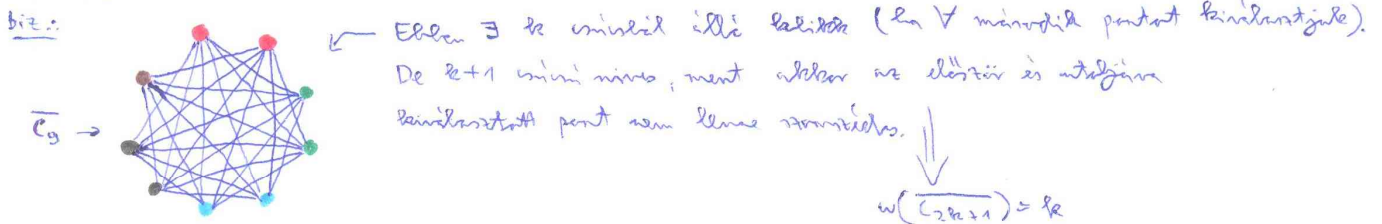 biz.:
Ebben ∃ k csúcsból álló klikk (ha ∀ második pontot kiválasztjuk).
De k+1 csúcsú nincs, mert akkor az először és utoljára
kiválasztott pont nem lenne szomszédos.
C̅₉ →
ω(\overline{C_{2k+1}}) = k